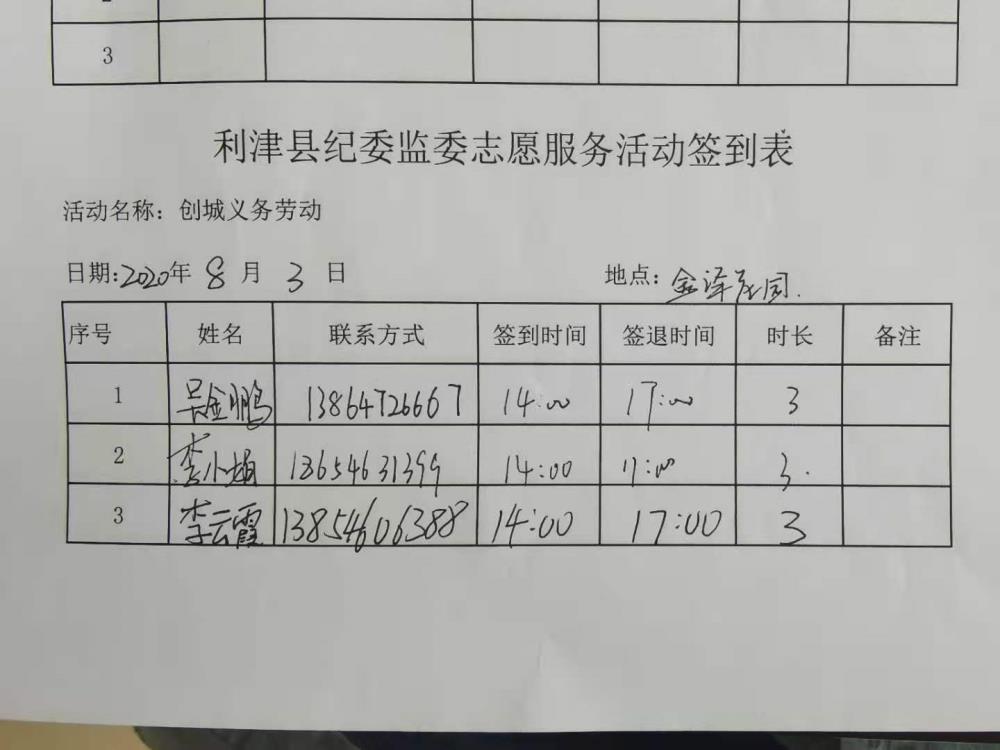 3
利津县纪委监委志愿服务活动签到表
活动名称：创城义务劳动
日期:2020年 8 月 3 日 地点：金泽花园.
序号 姓名 联系方式 签到时间 签退时间 时长 备注
1 吴金鹏 13864726667 14:00 17:00 3
2 李小娟 14:00 17:00 3.
3 李云霞 13854606388 14:00 17:00 3